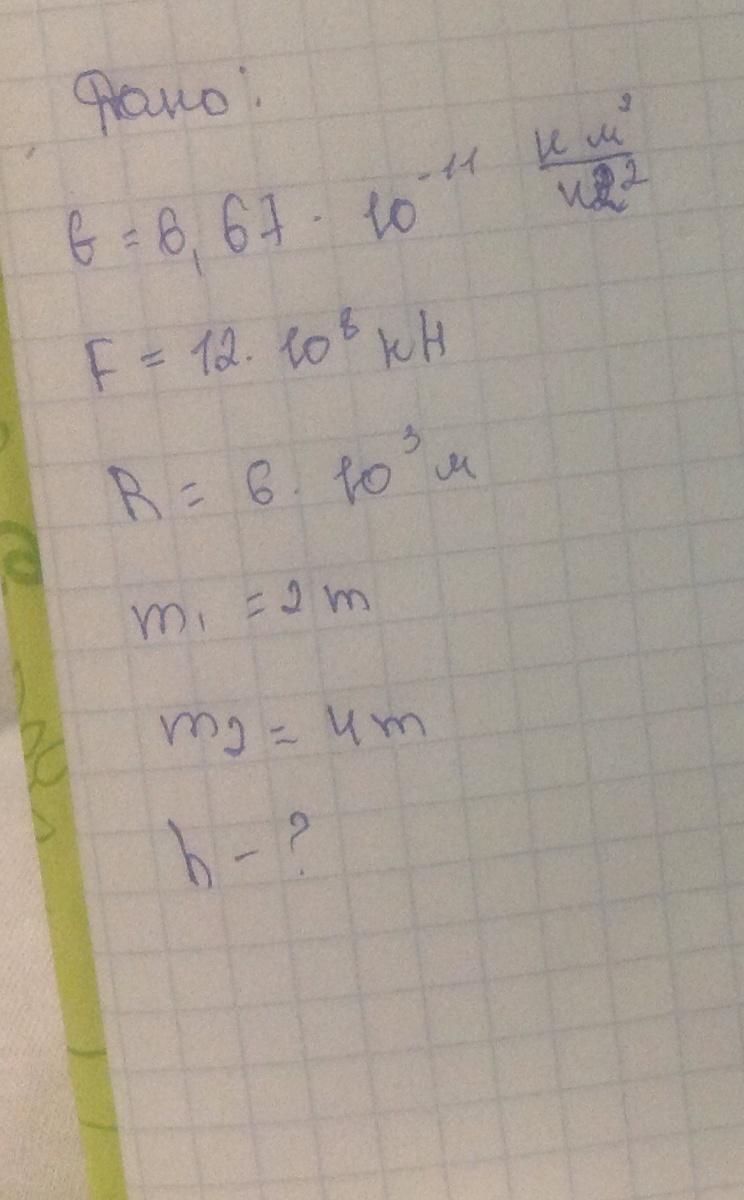 Дано:
G = 6,67 · 10⁻¹¹ н м² / кг²
F = 12 · 10⁸ кН
R = 6 · 10³ м
m₁ = 2 т
m₂ = 4 т
h - ?